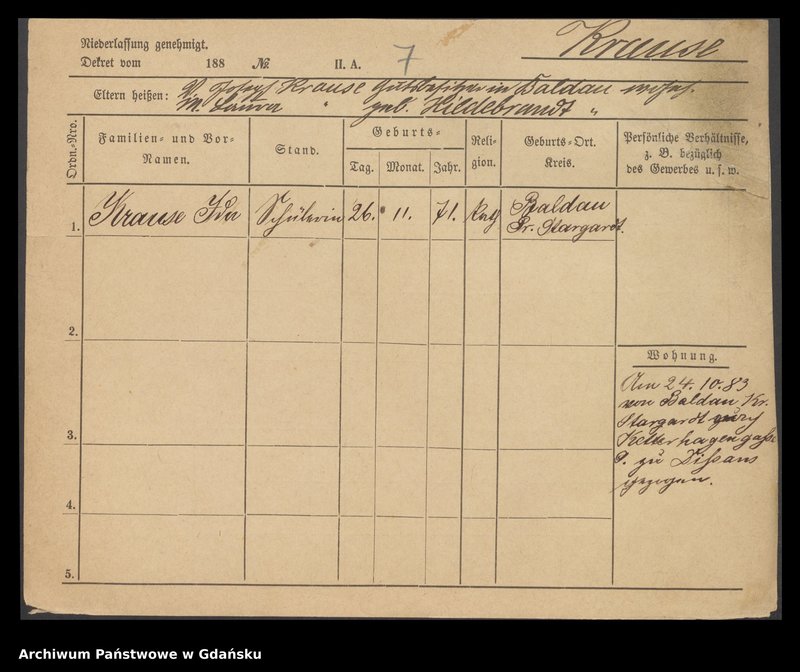 Krause
Niederlassung genehmigt.
Dekret vom 188 No. II. A. 7
Eltern heißen: V. Joseph Krause Gutsbesitzer in Baldau wohnh.
M. Laura " geb. Hildebrandt "
Ordn.-Nro.
Familien- und Vor-Namen.
Stand.
Geburts-
Tag. Monat. Jahr.
Religion.
Geburts-Ort.
Kreis.
Persönliche Verhältnisse,
z. B. bezüglich
des Gewerbes u. s. w.
1. Krause Ida Schülerin 26. 11. 71. Kath Baldau
Pr. Stargardt.
2.
Wohnung.
Am 24. 10. 83
von Baldau Kr.
Stargardt
3.
Ketterhagengasse
9. zu
gezogen.
4.
5.
Archiwum Państwowe w Gdańsku